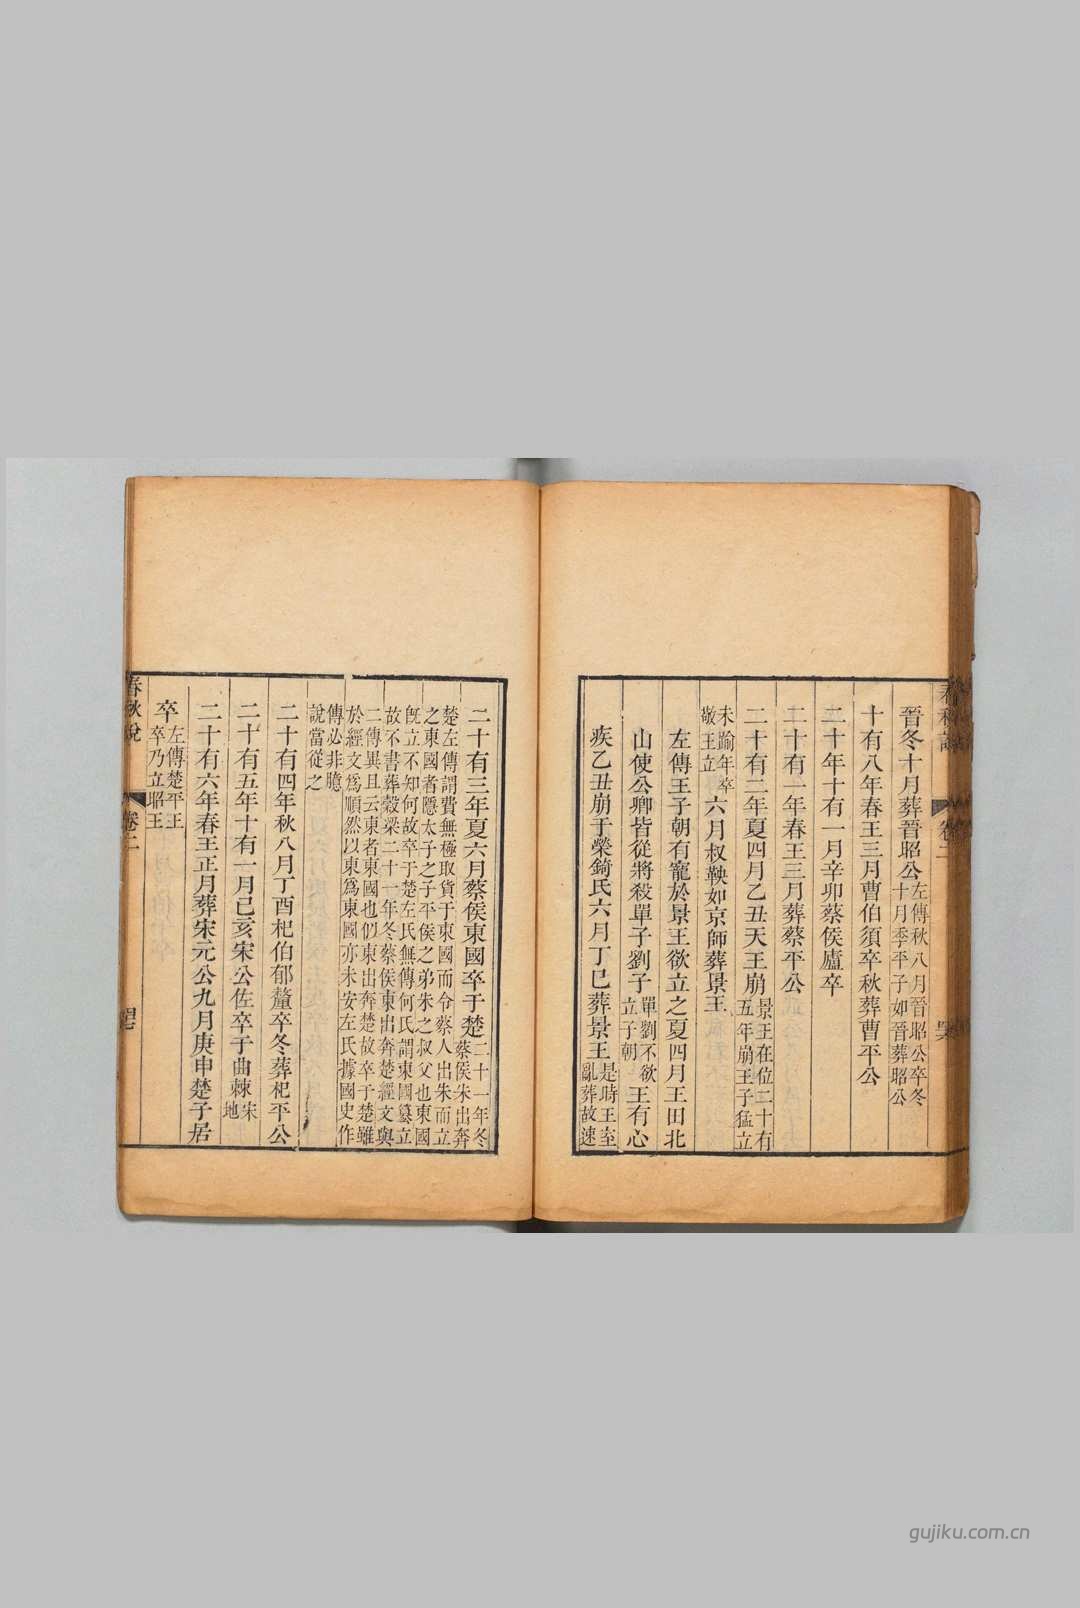 春秋說 卷二
晉冬十月葬晉昭公左傳秋八月晉昭公卒冬十月季平子如晉葬昭公
十有八年春王三月曹伯須卒秋葬曹平公
二十年十有一月辛卯蔡侯廬卒
二十有一年春王三月葬蔡平公
二十有二年夏四月乙丑天王崩景王在位二十有五年崩王子猛立
未踰年卒敬王立六月叔鞅如京師葬景王
左傳王子朝有寵於景王欲立之夏四月王田北
山使公卿皆從將殺單子劉子單劉不欲立子朝王有心
疾乙丑崩于榮錡氏六月丁巳葬景王是時王室亂葬故速
二十有三年夏六月蔡侯東國卒于楚二十一年冬蔡侯朱出奔
楚左傳謂費無極取貨于東國而令蔡人出朱而立
之東國者隱太子之子平侯之弟朱之叔父也東國
旣立不知何故卒于楚左氏無傳何氏謂東國簒立
故不書葬穀梁二十一年冬蔡侯東出奔楚經文與
二傳異且云東者東國也似東出奔楚故卒于楚雖
於經文爲順然以東爲東國亦未安左氏據國史作
傳必非臆
說當從之
二十有四年秋八月丁酉杞伯郁釐卒冬葬杞平公
二十有五年十有一月己亥宋公佐卒于曲棘宋地
二十有六年春王正月葬宋元公九月庚申楚子居
卒左傳楚平王卒乃立昭王
春秋說 卷二